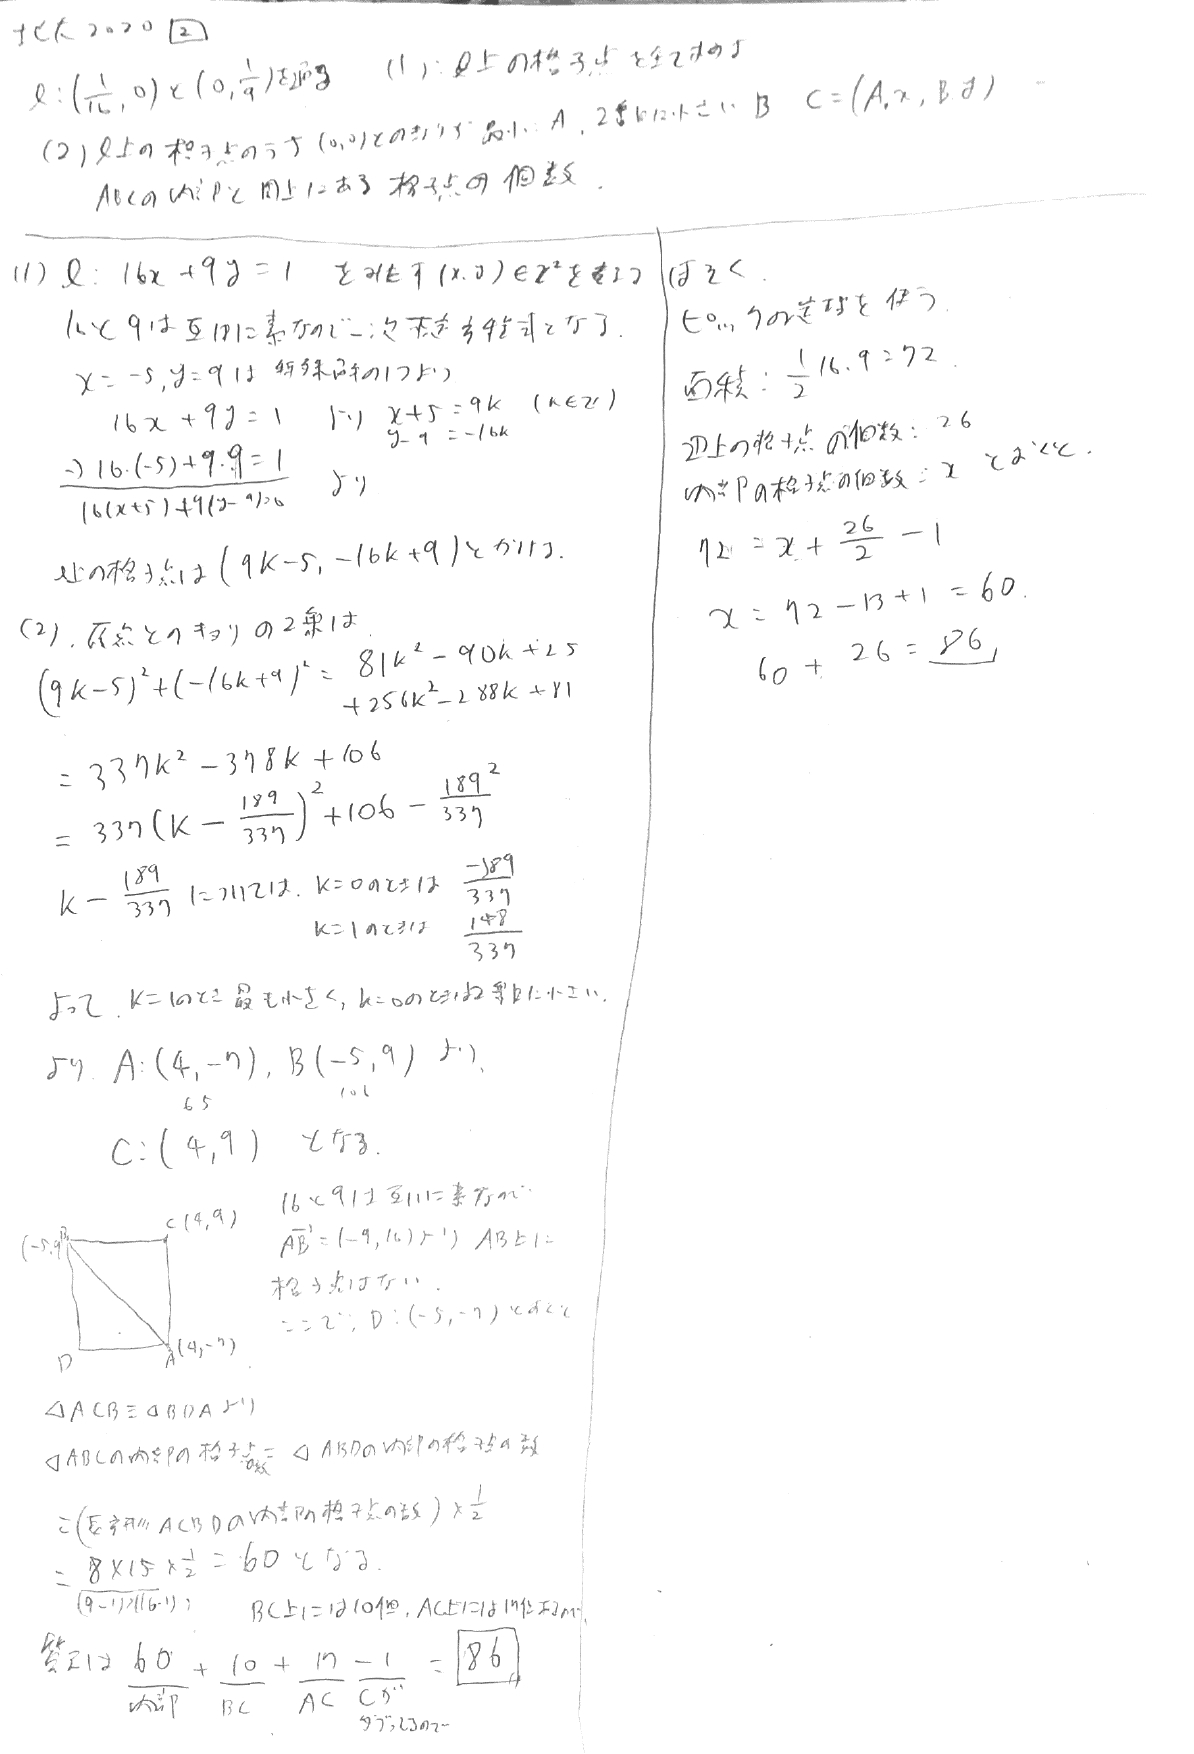 北大2020 [2]
l:(1/16, 0)と(0, 1/9)を通る (1):l上の格子点を全て求めよ
(2) l上の格子点のうち(0,0)とのきょりが最小: A, 2番目に小さい B C=(A.x, B.y)
ABCの内部と周上にある格子点の個数.
(1) l: 16x+9y=1 をみたす(x,y)∈Z²を考える
16と9は互いに素なので一次不定方程式となる.
x=-5, y=9は特殊解の1つより
16x+9y=1 より x+5=9k (k∈Z)
y-9=-16k
-) 16・(-5)+9・9=1
16(x+5)+9(y-9)=0 より
l上の格子点は(9k-5, -16k+9)とかける.
(2). 原点とのきょりの2乗は
(9k-5)²+(-16k+9)²= 81k²-90k+25
+256k²-288k+81
=337k²-378k+106
=337(k-189/337)²+106-189²/337
k-189/337 については. k=0のときは -189/337
k=1のときは 148/337
よって k=1のとき最も小さく, k=0のときは2番目に小さい.
より A:(4,-7), B(-5,9) より,
65 106
C:(4,9) となる.
(-5,9) B C(4,9)
D A(4,-7)
16と9は互いに素なので
AB→=(-9,16)より AB上に
格子点はない.
ここで, D:(-5,-7)とおくと
△ACB≡△BDAより
△ABCの内部の格子点の数=△ABDの内部の格子点の数
=(長方形ACBDの内部の格子点の数)×1/2
=8×15×1/2=60となる.
(9-1)×(16-1)
BC上には10個, AC上には17個あるので,
答えは 60+10+17-1=86
内部 BC AC Cが
ダブってるので
ほそく.
ピックの定理を使う.
面積: 1/2 16・9=72.
辺上の格子点の個数: 26
内部の格子点の個数: x とおくと.
72=x+26/2-1
x=72-13+1=60.
60+26=86